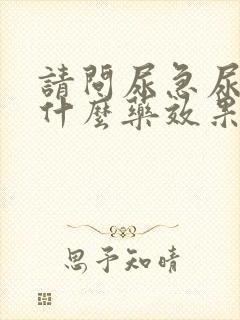 請問尿急尿
什麼藥效果
思予知晴